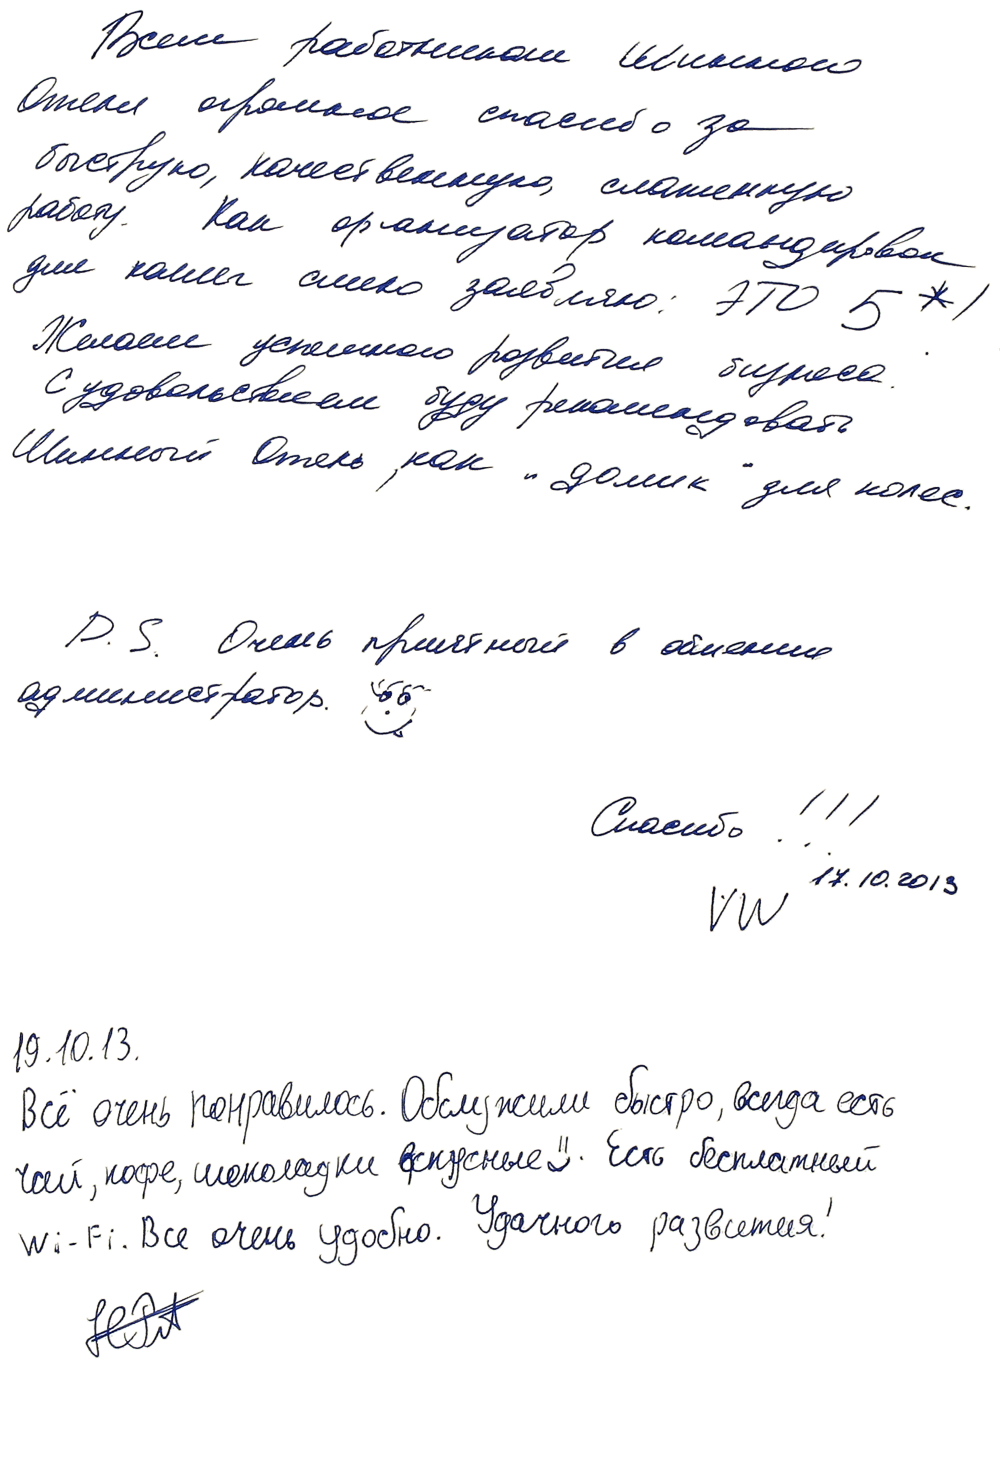 Всем работникам Шинного
Отеля огромное спасибо за
быструю, качественную, слаженную
работу. Как организатор командировок
для колёс смело заявляю: ЭТО 5*!
Желаем успешного развития бизнеса.
С удовольствием буду рекомендовать
Шинный Отель, как "домик" для колес.
P.S. Очень приятный в общении
администратор.
Спасибо!!!
17.10.2013
VW
19.10.13.
Всё очень понравилось. Обслужили быстро, всегда есть
чай, кофе, шоколадки вкусные. Есть бесплатный
Wi-Fi. Все очень удобно. Удачного развития!